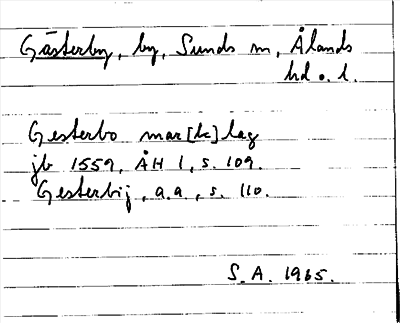 Gästerby, by, Sunds sn, Ålands
hd o. l.
Gesterbo mar[k]lag
jb 1559, ÅH 1, s. 109.
Gesterbij, a.a., s. 110.
S.A. 1965.